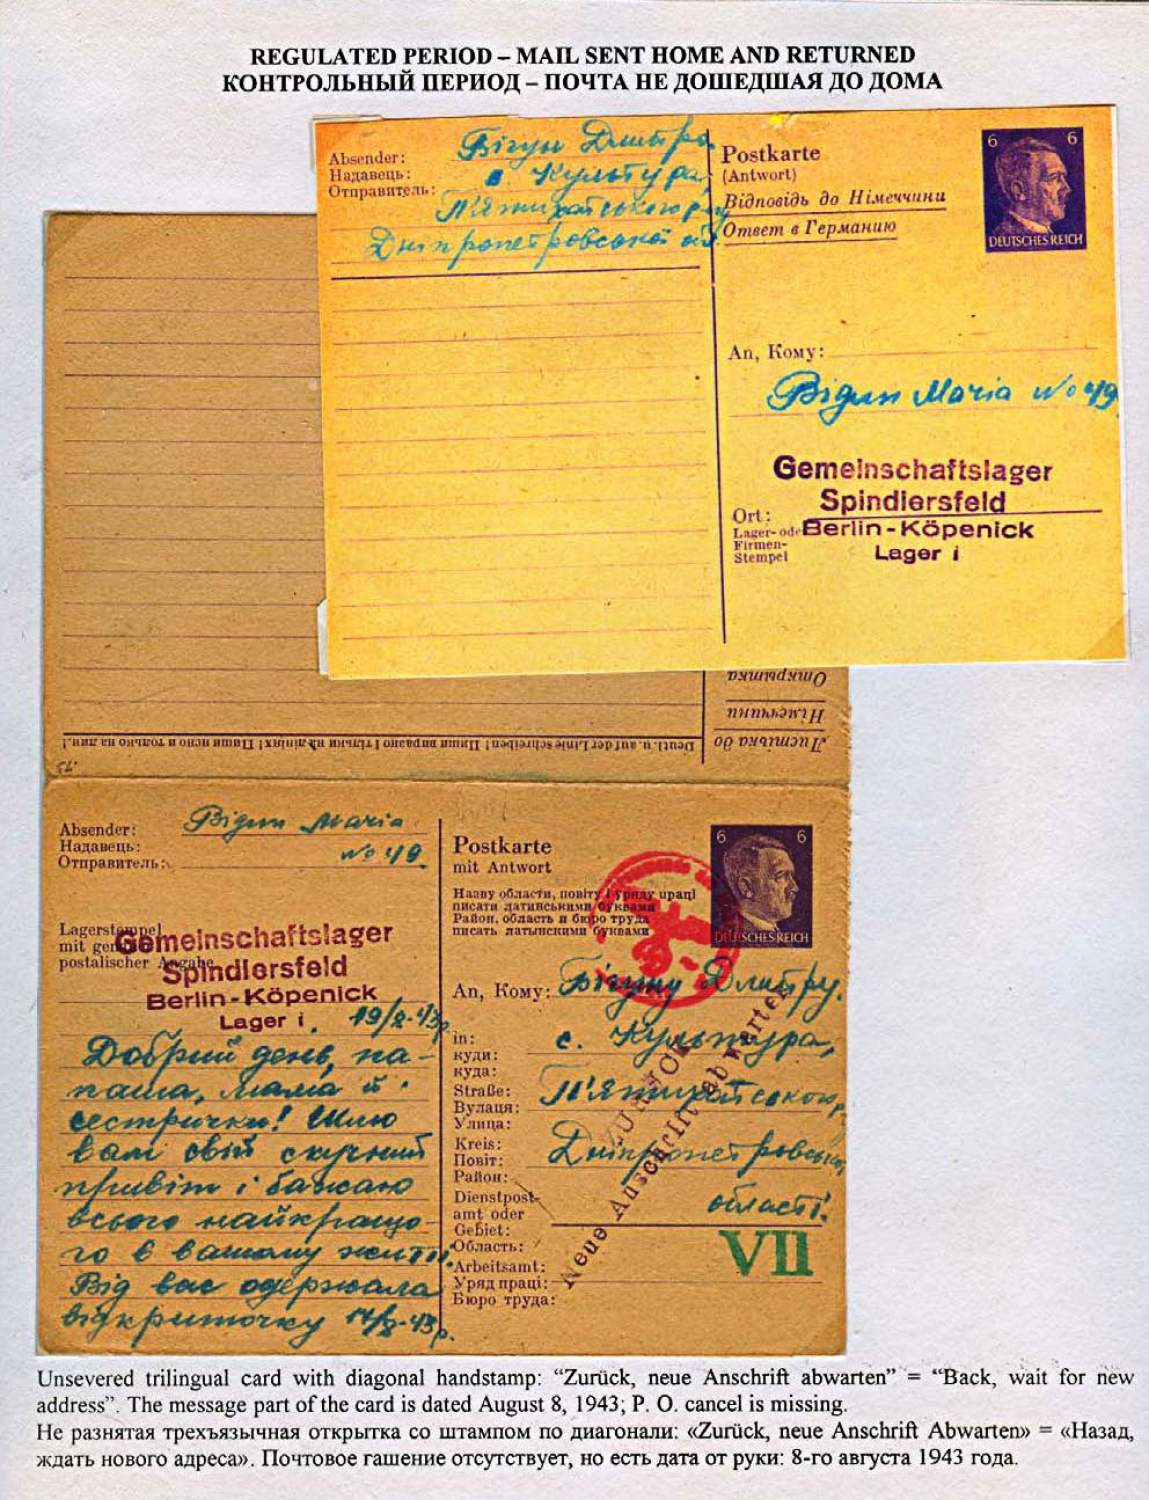 REGULATED PERIOD – MAIL SENT HOME AND RETURNED
КОНТРОЛЬНЫЙ ПЕРИОД – ПОЧТА НЕ ДОШЕДШАЯ ДО ДОМА
Absender:
Надавець:
Отправитель:
Бігун Дмитро
с. Культура,
П'ятихатського р-ну
Дніпропетровської об.
Postkarte
(Antwort)
Відповідь до Німеччини
Ответ в Германию
6 6
DEUTSCHES REICH
An, Кому:
Maria No 49
Gemeinschaftslager
Spindlersfeld
Berlin-Köpenick
Lager i
Ort:
Lager- oder
Firmen-
Stempel
Открытка
Німеччини
Листівка до
Deutl. u. auf der Linie schreiben! Пиши виразно і тільки на лініях! Пиши ясно и только на лин.!
Absender:
Надавець:
Отправитель:
Maria
No 49
Lagerstempel
mit genauer
postalischer Angabe
Gemeinschaftslager
Spindlersfeld
Berlin-Köpenick
Lager i
19/8-43р.
Добрий день, па-
паша, мама й
сестрички! Шлю
вам свій скучний
привіт і бажаю
всього найкращо-
го в вашому житті.
Від вас одержала
відкриточку 14/8-43р.
Postkarte
mit Antwort
Назву области, повіту і уряду праці
писати латинськими буквами
Район, область и бюро труда
писать латынскими буквами
6 6
DEUTSCHES REICH
An, Кому:
Бігуну Дмитру.
in:
куди:
куда:
с. Культура,
Straße:
Вулаця:
Улица:
П'ятихатського р.
Kreis:
Повіт:
Район:
Дніпропетровської
Dienstpost-
amt oder
Gebiet:
Область:
області.
Arbeitsamt:
Уряд праці:
Бюро труда:
ZURÜCK
Neue Anschrift abwarten
VII
Unsevered trilingual card with diagonal handstamp: “Zurück, neue Anschrift abwarten” = “Back, wait for new
address”. The message part of the card is dated August 8, 1943; P. O. cancel is missing.
Не разнятая трехъязычная открытка со штампом по диагонали: «Zurück, neue Anschrift Abwarten» = «Назад,
ждать нового адреса». Почтовое гашение отсутствует, но есть дата от руки: 8-го августа 1943 года.